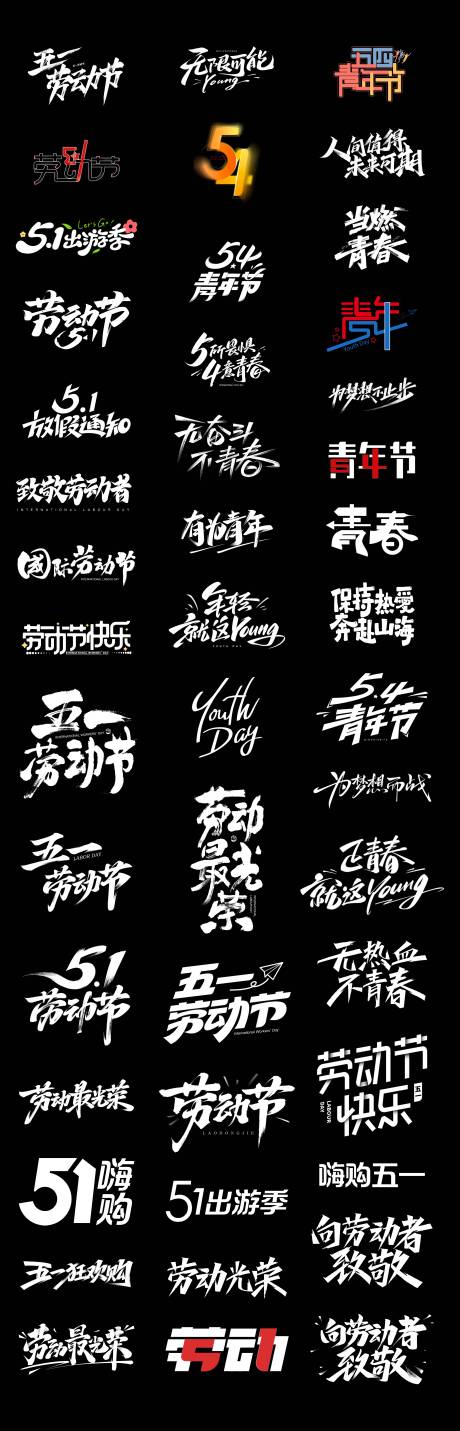 五一
劳动节
劳动节
5.1出游季
Let's Go!
劳动节
5.1
5.1
放假通知
致敬劳动者
INTERNATIONAL LABOUR DAY
国际劳动节
INTERNATIONAL LABOUR DAY
劳动节快乐
INTERNATIONAL WORKERS' DAY
五一
INTERNATIONAL WORKERS' DAY
劳动节
五一
LABOR DAY
劳动节
5.1
劳动节
劳动最光荣
51嗨购
五一狂欢购
劳动最光荣
无限可能
Young
54
54
青年节
5所畏惧
4意青春
无奋斗
不青春
有为青年
年轻
就这Young
YOUTH DAY
Youth
Day
劳动
最光
荣
五一
劳动节
International Workers' Day
劳动节
LAODONGJIE
51出游季
劳动光荣
劳动
五四
青年节
人间值得
未来可期
当燃
青春
青年
54
Youth Day
为梦想不止步
青年节
青春
保持热爱
奔赴山海
5.4
青年节
为梦想而战
正青春
就这Young
无热血
不青春
劳动节
快乐
五一
LABOUR
DAY
嗨购五一
向劳动者
致敬
向劳动者
致敬